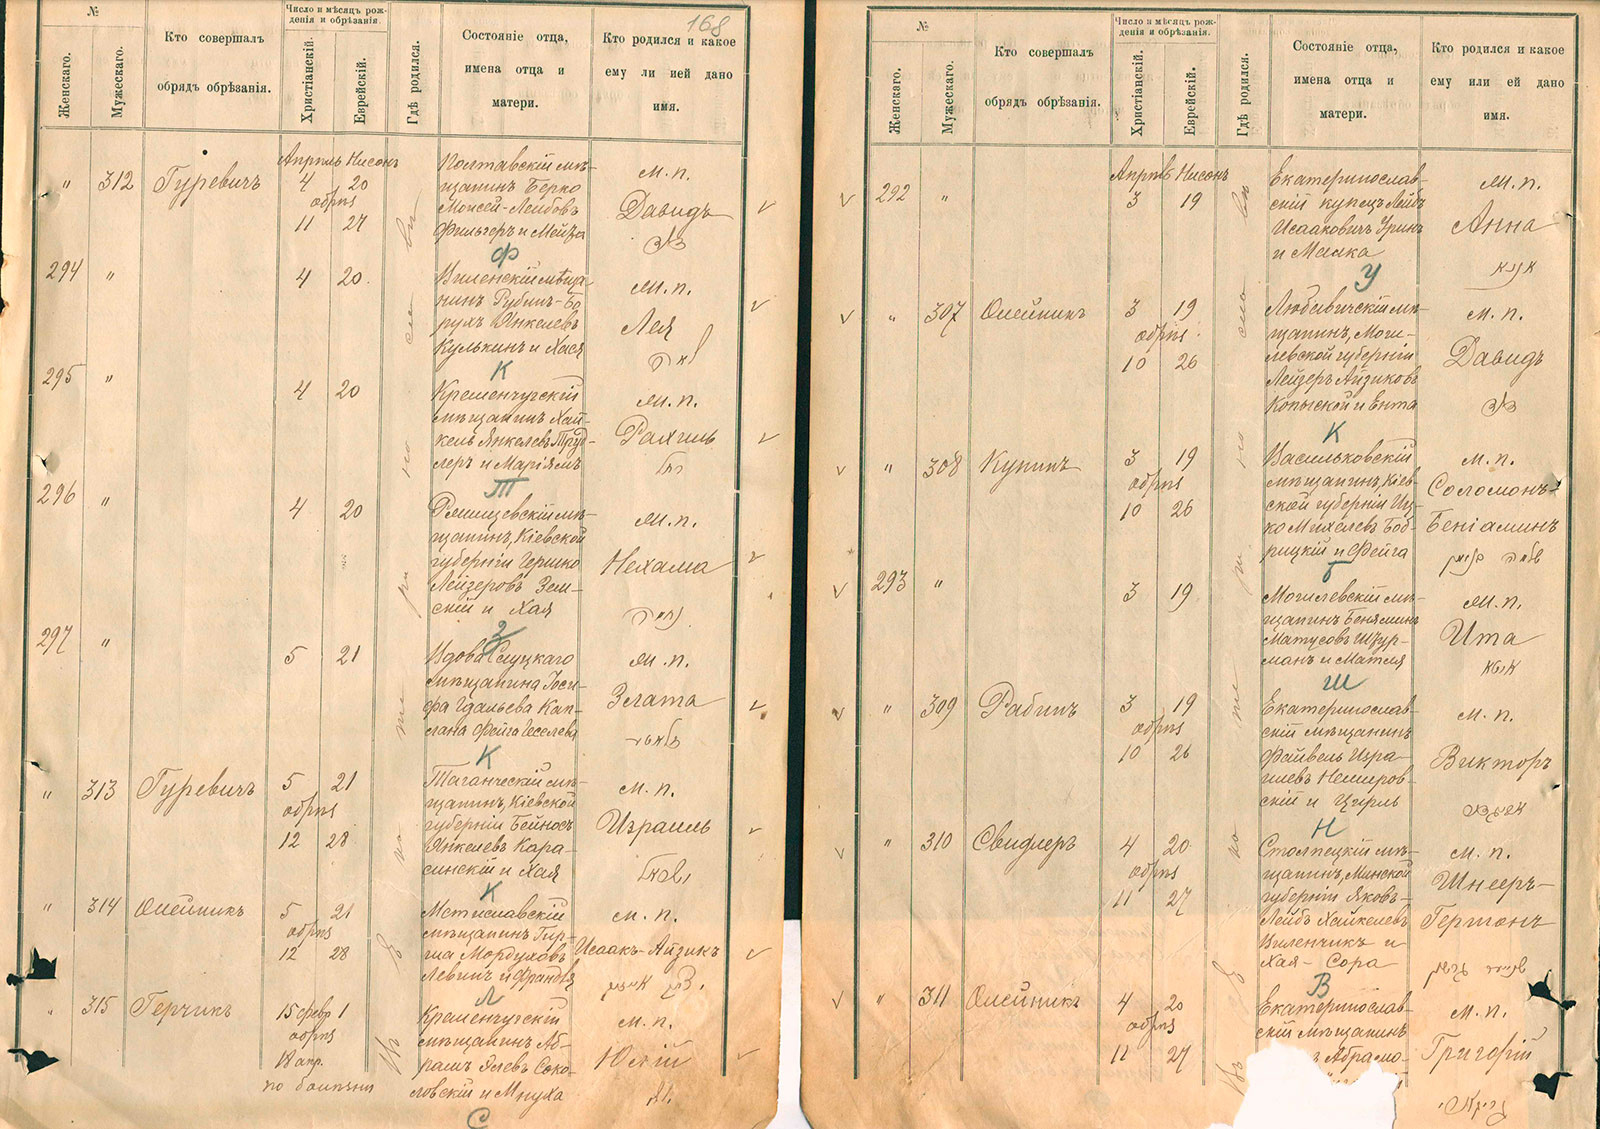 168
№
Женскаго.
Мужескаго.
Кто совершалъ
обрядъ обрѣзанія.
Число и мѣсяцъ рож-
денія и обрѣзанія.
Христіанскій.
Еврейскій.
Гдѣ родился.
Состояніе отца,
имена отца и
матери.
Кто родился и какое
ему ли ией дано
имя.
Апрель Нисонъ
" 312 Гуревичъ 4 20
обрѣз
11 27
Полтавскій мѣ-
щанинъ Берко
Мойсей-Лейбовъ
Фильгеръ и Мейта
Ф
м. п.
Давидъ
דוד
294 " 4 20
Виленскій мѣща
нинъ Рубинъ-Бо
рухъ Янкелевъ
Кулькинъ и Хася
К
м. п.
Лея
לאה
295 " 4 20
Кременчугскій
мѣщанинъ Хай-
кель Янкелевъ
леръ и Маріямъ
Т
м. п.
Рахиль
רחל
296 " 4 20
мѣ-
щанинъ, Кіевской
губерніи Гершко
Лейзеровъ Зем-
скій и Хая
З
м. п.
Нехама
נחמה
297 " 5 21
Вдова Слуцкаго
мѣщанина Іоси-
фа Гдальева Кап-
лана Фейга Іоселева
К
м. п.
Злата
זלאטא
" 313 Гуревичъ 5 21
обрѣз
12 28
Таганческій мѣ-
щанинъ, Кіевской
губерніи Бейнось
Янкелевъ Кара-
синскій и Хая
К
м. п.
Израиль
ישראל
" 314 Олейникъ 5 21
обрѣз
12 28
Мстиславскій
мѣщанинъ Гир-
ша Мордуховъ
Левинъ и
Л
м. п.
Исаакъ-Айзикъ
יצחק אייזיק
" 315 Герчикъ 15 февр 1
обрѣз
18 апр.
по болѣзни
Кременчугскій
мѣщанинъ Аб-
рамъ Соко-
ловскій и Мнуха
С
м. п.
Юлій
№
Женскаго.
Мужескаго.
Кто совершалъ
обрядъ обрѣзанія.
Число и мѣсяцъ рож-
денія и обрѣзанія.
Христіанскій.
Еврейскій.
Гдѣ родился.
Состояніе отца,
имена отца и
матери.
Кто родился и какое
ему или ей дано
имя.
Апрель Нисонъ
292 " 3 19
Екатеринослав-
скій купецъ Лейбъ
Исааковичъ Уринъ
и Малка
У
м. п.
Анна
" 307 Олейникъ 3 19
обрѣз
10 26
Любавичскій мѣ-
щанинъ, Моги-
левской губерніи
Лейзеръ Айзиковъ
Копыской и Ента
К
м. п.
Давидъ
דוד
" 308 Кунинъ 3 19
обрѣз
10 26
Васильковскій
мѣщанинъ, Кіев-
ской губерніи Иц-
ко Михелевъ Боб-
рицкій и Фейга
Б
м. п.
Соломонъ-
Беніаминъ
שלמה בנימין
293 " 3 19
Могилевскій мѣ-
щанинъ Беняминъ
Матусовъ Шур-
манъ и Матля
Ш
м. п.
Ита
איטא
" 309 Рабинъ 3 19
обрѣз
10 26
Екатеринослав-
скій мѣщанинъ
Файвель Изра-
илевъ Немиров-
скій и Цирль
Н
м. п.
Викторъ
" 310 Свидлеръ 4 20
обрѣз
11 27
Столпецкій мѣ-
щанинъ, Минской
губерніи Яковъ-
Лейбъ Хайкелевъ
Виленчикъ и
Хая-Сора
В
м. п.
Шнееръ-
Германъ
" 311 Олейникъ 4 20
обрѣз
11 27
Екатеринослав-
скій мѣщанинъ
Абрамо-
м. п.
Григорій